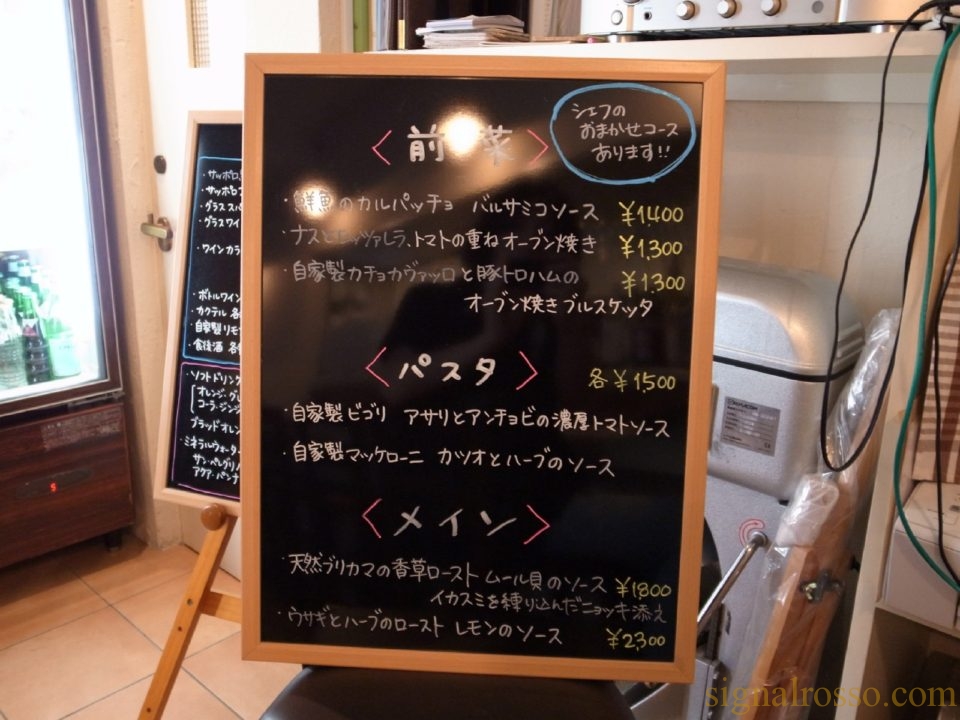 シェフの
おまかせコース
あります!!
〈 前菜 〉
・鮮魚のカルパッチョ バルサミコソース ¥1,400
・ナスとモッツァレラ、トマトの重ねオーブン焼き ¥1,300
・自家製カチョカヴァッロと豚トロハムの ¥1,300
オーブン焼きブルスケッタ
〈 パスタ 〉 各¥1,500
・自家製ビゴリ アサリとアンチョビの濃厚トマトソース
・自家製マッケローニ カツオとハーブのソース
〈 メイン 〉
・天然ブリカマの香草ロースト ムール貝のソース ¥1,800
イカスミを練り込んだニョッキ添え
・ウサギとハーブのロースト レモンのソース ¥2,300
・サッポロ
・サッポロ
・グラススパ
・グラスワイ
・ワインカラ
・ボトルワイン
・カクテル 各
・自家製リモ
・食後酒 各
・ソフトドリンク
オレンジ・グレ
コーラ・ジンジ
ブラッドオレン
・ミネラルウォーター
サン・ペレグリノ
アクア・パンナ
signalrosso.com